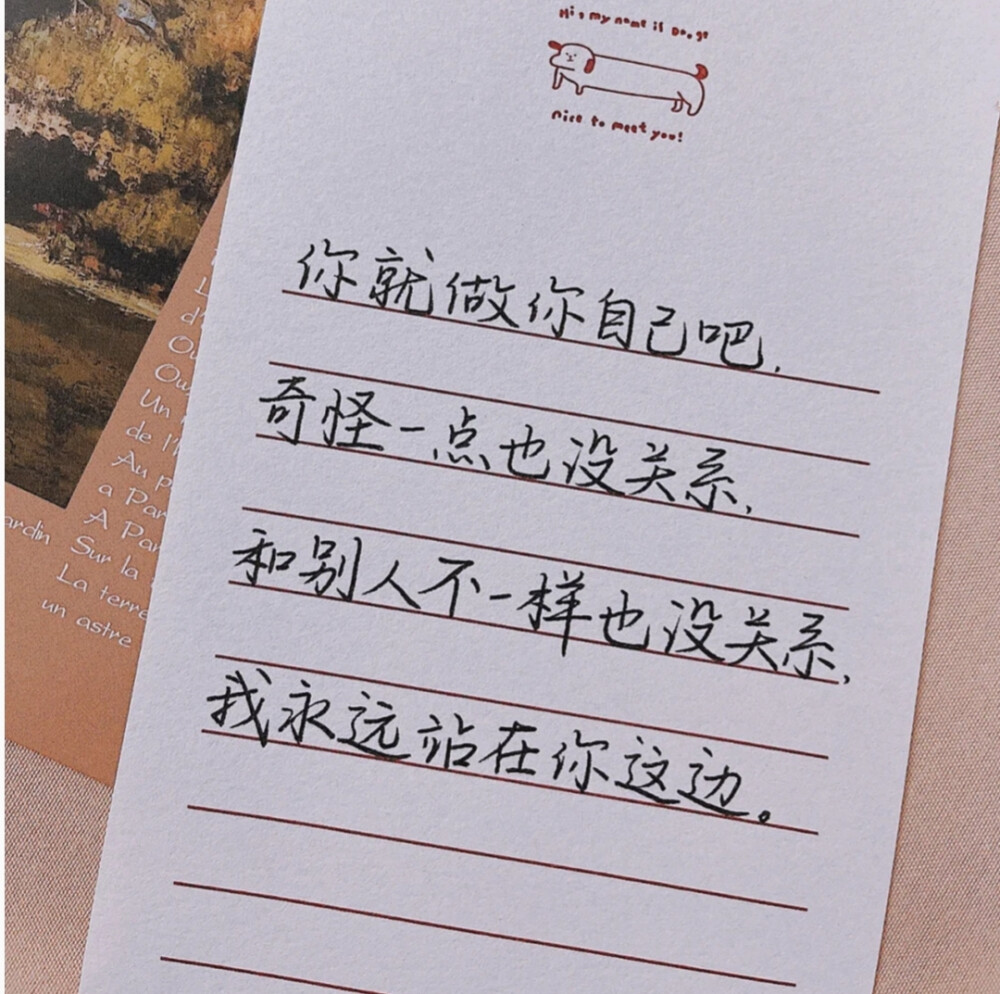 Hi, my name is Dooge
nice to meet you!
你就做你自己吧,
奇怪一点也没关系,
和别人不一样也没关系,
我永远站在你这边。
L
d'
Ou
Ou
Un
de l'
Au p
a Par
A Par
ardin Sur la
La terre
un astre